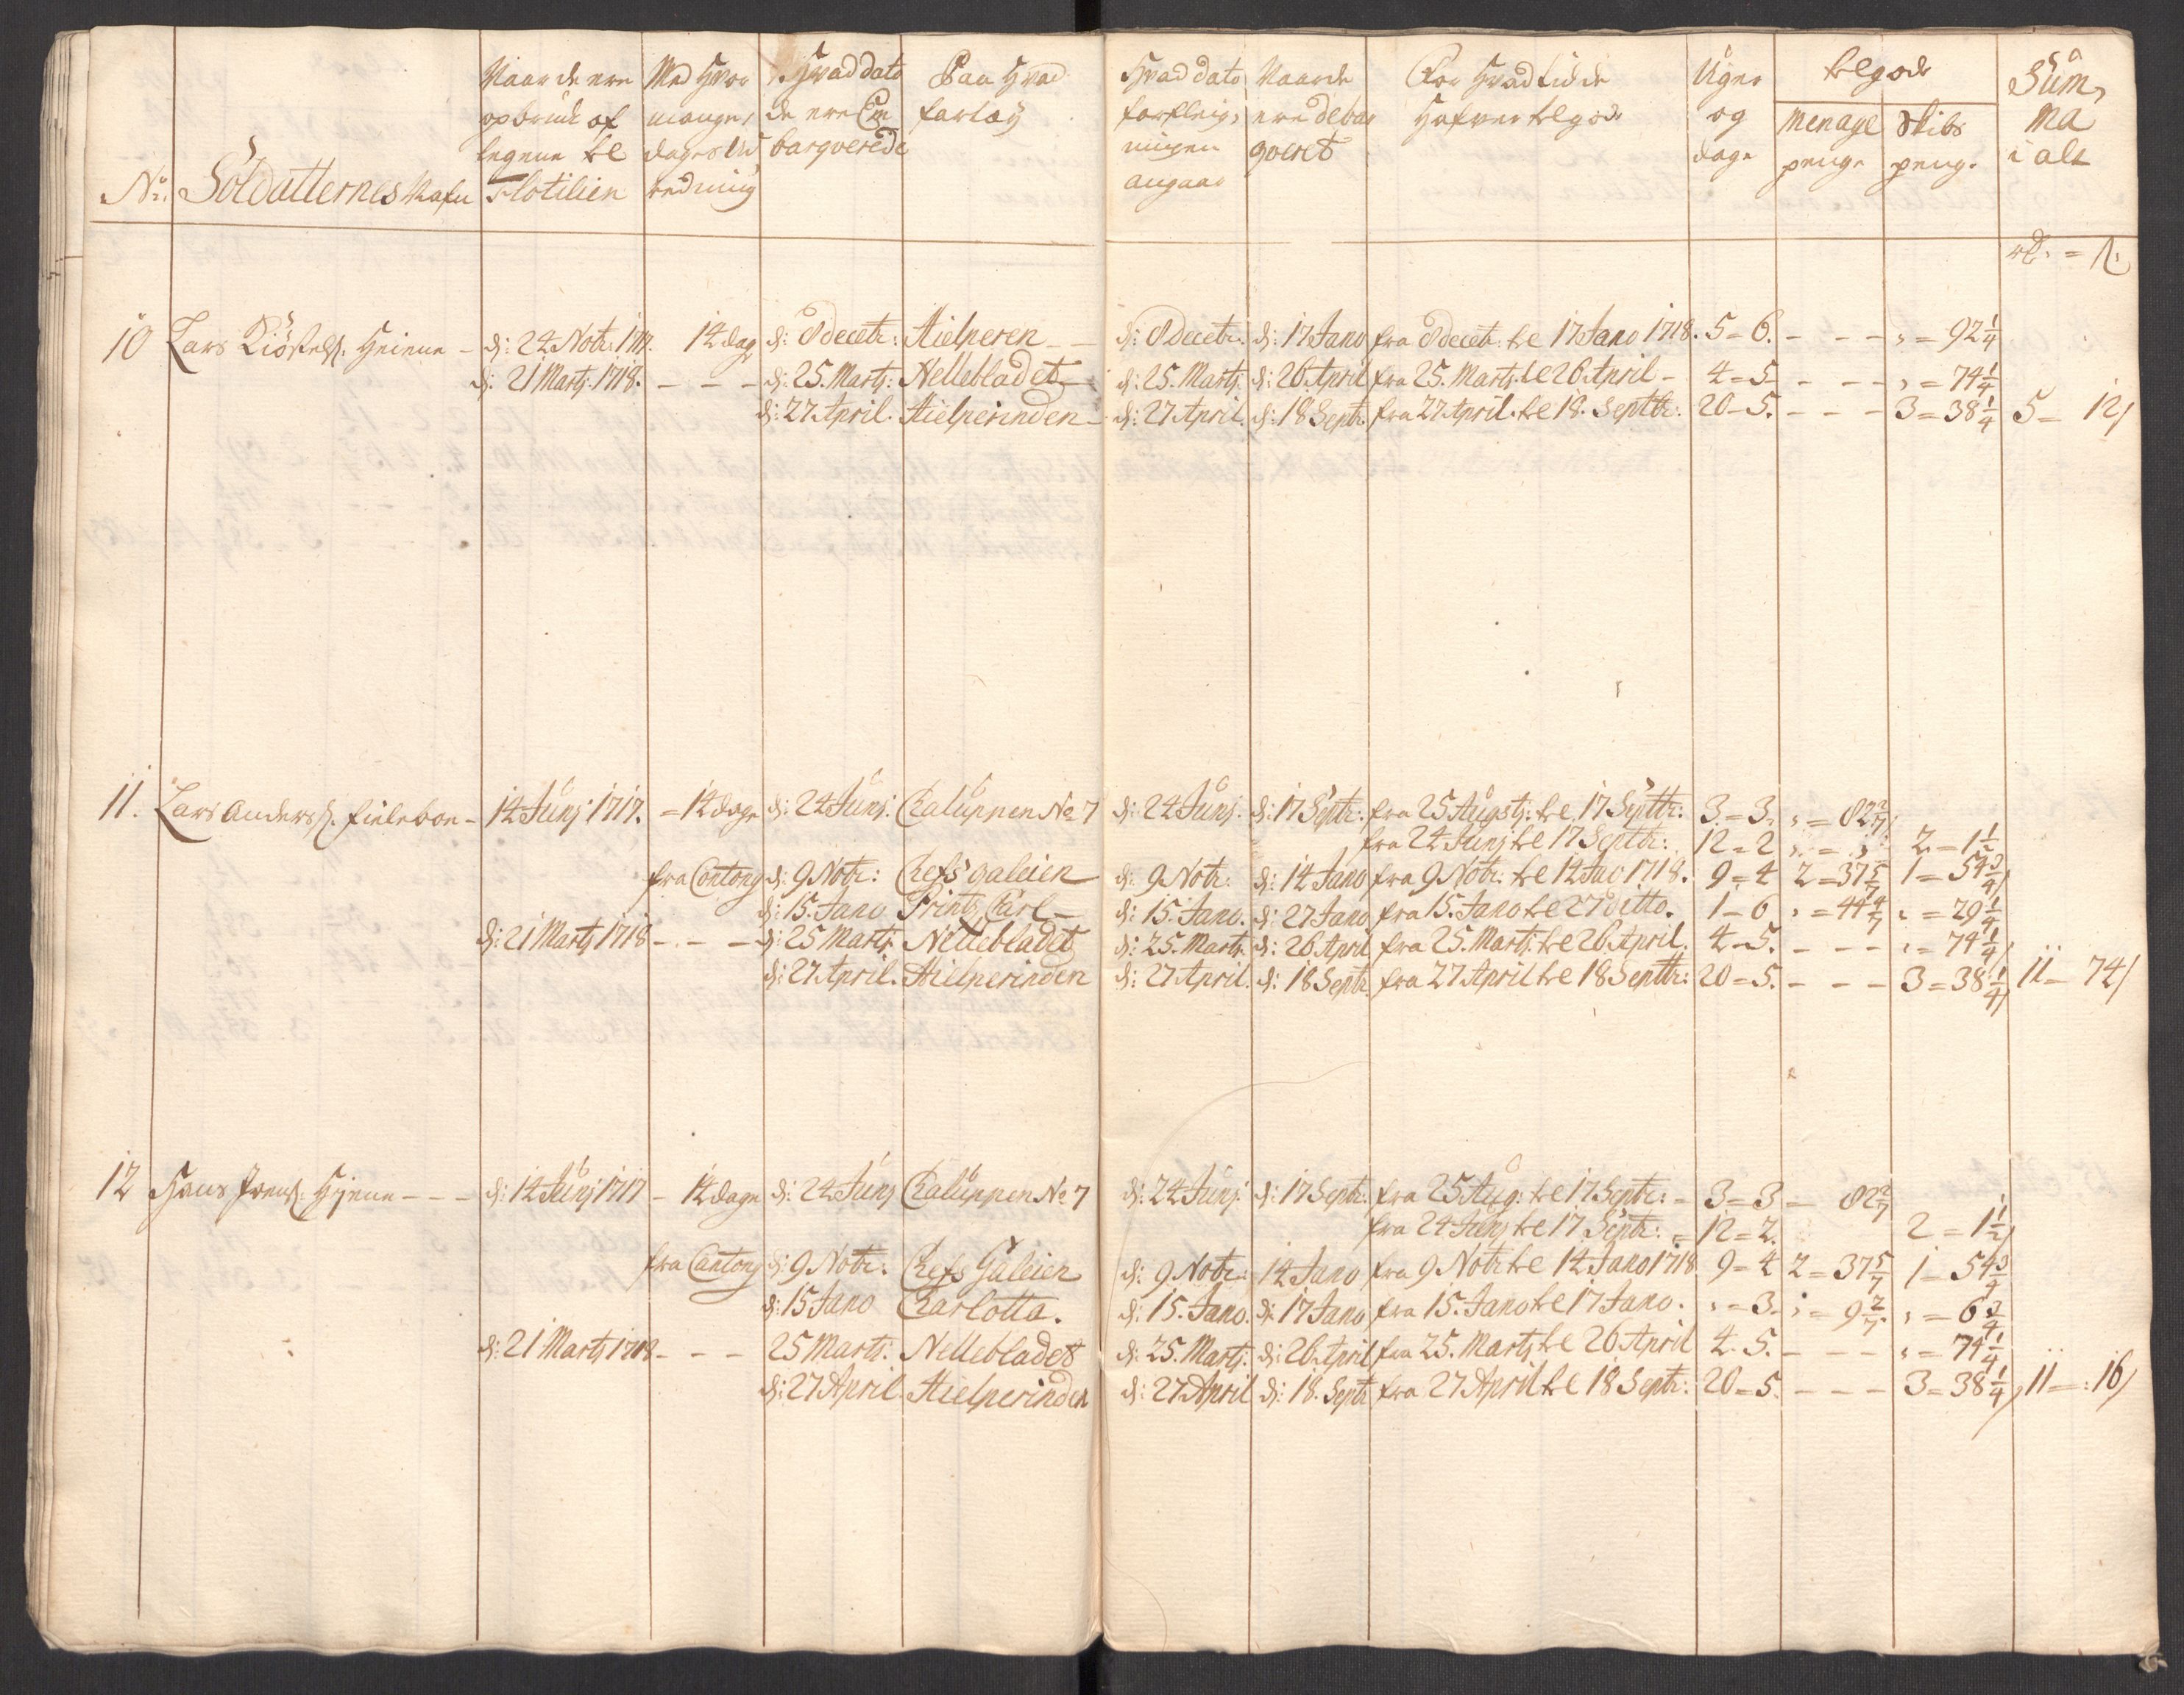 No. Soldatternes Nafn
Naar de ere opbrudt af legene til Flotilien
Med Hvor mange dages Ud redning
Hvad dato de ere Em barqverede
Paa Hvad fartøy
Hvad dato forpleig, ningen angaar
Naar de ere debar qveret
For Hvad tid de Hafver tilgode
Uger og dage
tilgode
Menage penge
Skibs penge
Sum, Ma i alt
rd. = ß.
10 Lars Heiene - d: 24 Notr: 1717. 14 dag d: 8 decetr: Hielperen - - d: 8 decetr: d: 17 Jano fra 8 decetr: til 17 Jano 1718. 5 = 6. - - - " = 92 1/4
d: 21 Marty 1718. - - - d: 25. Marty: Nellebladet - d: 25. Marty. d: 26 April fra 25. Marty til 26 April - 4 = 5 - - - " = 74 1/4
d: 27 April. Hielperinden - d: 27 April. d: 18 Septr. fra 27 April. til 18. Septtr: 20 - 5. - - - 3 = 38 1/4 5 = 12/
11. Lars Anders. - 14 Junj 1717. = 14 dage d: 24 Junj. Chaluppen No 7 d: 24 Junj. d: 17 Septr: fra 25 Augstj: til 17 Septtr: 3 = 3. " = 82 2/7
fra 24 Junj til 17 Septtr: 12 = 2 " = " 2 = 1 1/2
fra Contony d: 9 Notr: Chefs galeien d: 9 Notr: d: 14 Jano fra 9 Notr: til 14 Jao 1718. 9 = 4 2 = 37 5/7 1 = 54 3/4
d: 15. Jano Printz Carl - d: 15. Jano. d: 27 Jano fra 15. Jano til 27 ditto. 1 - 6 " = 44 4/7 " = 29 1/4
d: 21 Marty 1718 - - - d: 25 Marty. Nellebladet d: 25. Marty. d: 26 April fra 25. Marty til 26 April. 4 - 5. - - - " = 74 1/4
d: 27 April. Hielperinden d: 27 April. d: 18 Septr. fra 27 April til 18 Septtr: 20 = 5. - - - 3 = 38 1/4 11 = 74/
12 Hans Hiene - - - d: 14 Junj 1717 - 14 dage d: 24 Junj Chaluppen No 7 d: 24 Junj. d: 17 Septr: fra 25 Aug: til 17 Septr: = 3 = 3 = 82 2/7
fra 24 Junj til 17 Septr: = 12 = 2. 2 = 1 1/2
fra Contony d: 9 Notr: Chefs Galeien d: 9 Notr: 14 Jano fra 9 Notr til 14 Jano 1718 9 = 4 2 = 37 5/7 1 = 54 3/4
d: 15 Jano Charlotta. d: 15. Jano. d: 17 Jano fra 15. Jano til 17 Jano. " = 3. " = 9 2/7. " = 6 3/4
d: 21 Marty 1718 - - - 25 Marty. Nellebladet d: 25. Marty: d: 26 April fra 25. Marty til 26 April 4. 5. - - - " = 74 1/4
d: 27 April. Hielperinden d: 27 April d: 18. Septr fra 27 April til 18 Septr: 20 = 5. - - - 3 = 38 1/4 11 = 16/